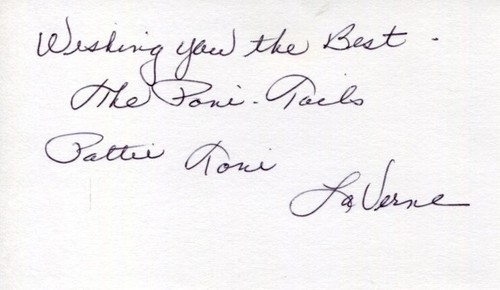 Wishing you the Best -
The Poni-Tails
Pattie Toni
LaVerne